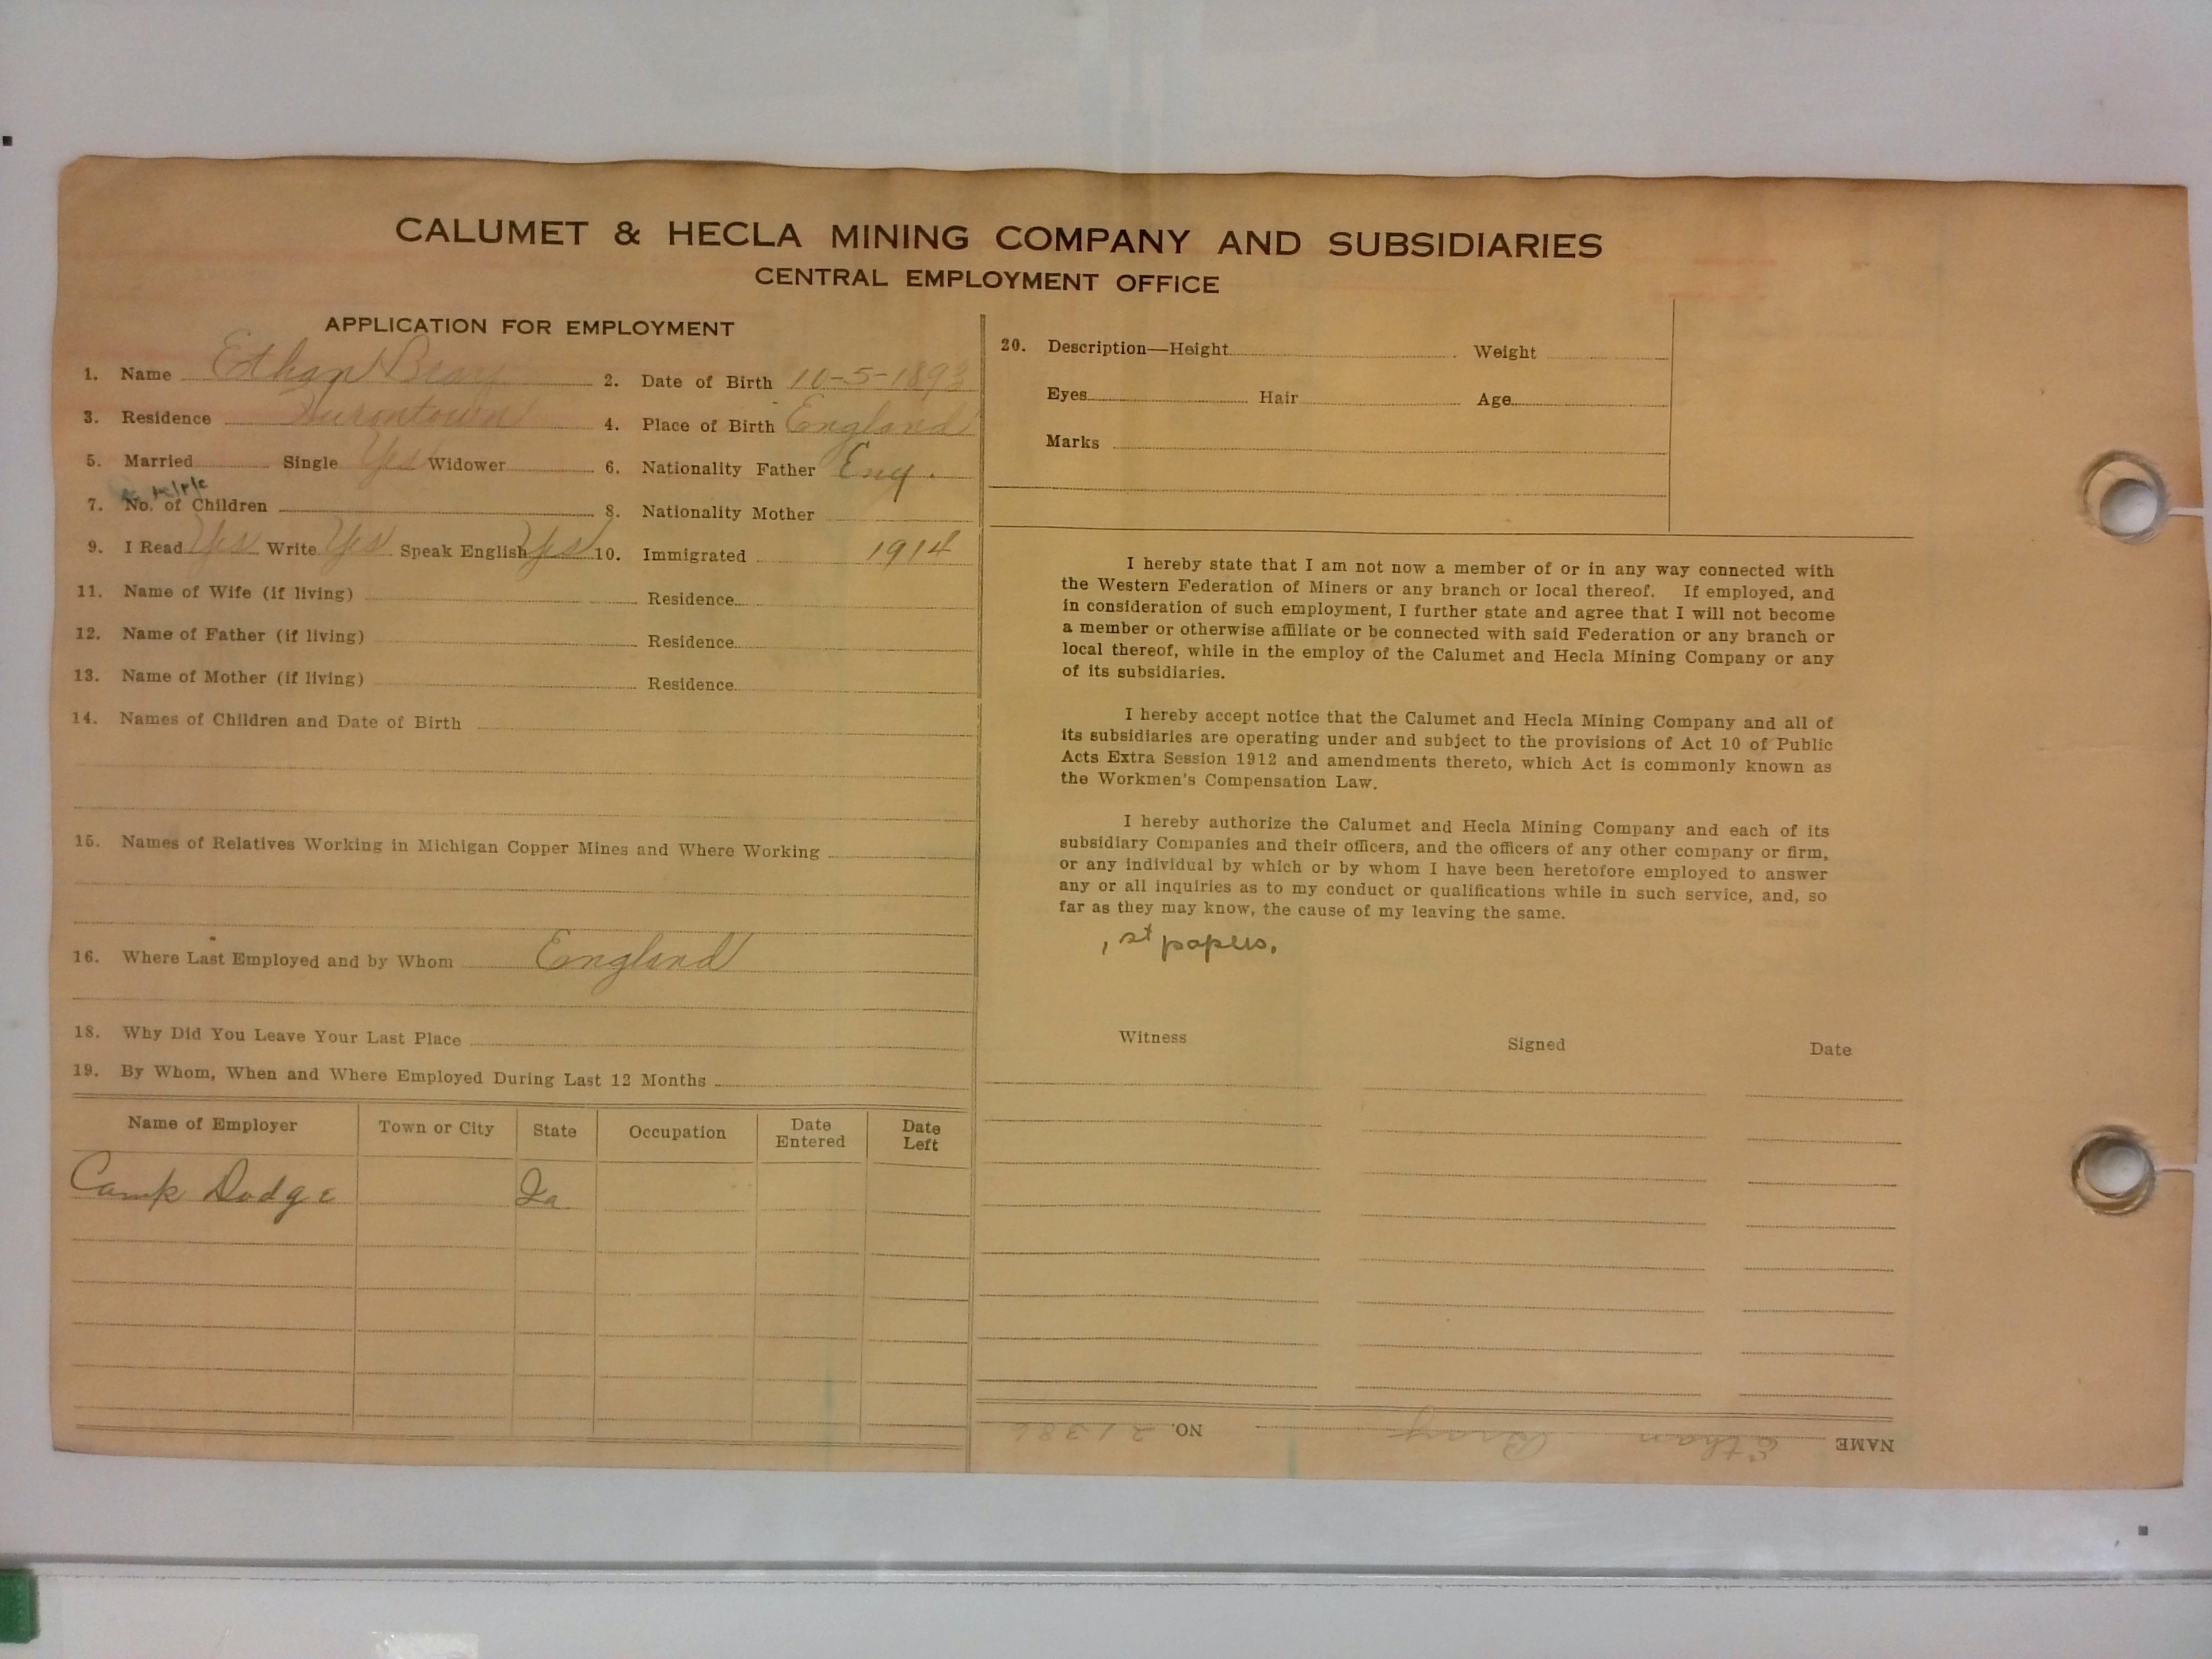 CALUMET & HECLA MINING COMPANY AND SUBSIDIARIES
CENTRAL EMPLOYMENT OFFICE
APPLICATION FOR EMPLOYMENT
1. Name Ethan Bray 2. Date of Birth 10-5-1893
3. Residence Hurontown 4. Place of Birth England
5. Married Single Yes Widower 6. Nationality Father Eng.
7. No. of Children 8. Nationality Mother
9. I Read Yes Write Yes Speak English Yes 10. Immigrated 1914
11. Name of Wife (if living) Residence
12. Name of Father (if living) Residence
13. Name of Mother (if living) Residence
14. Names of Children and Date of Birth
15. Names of Relatives Working in Michigan Copper Mines and Where Working
16. Where Last Employed and by Whom England
18. Why Did You Leave Your Last Place
19. By Whom, When and Where Employed During Last 12 Months
Name of Employer Town or City State Occupation Date Entered Date Left
Camp Dodge Ia
20. Description—Height Weight
Eyes Hair Age
Marks
I hereby state that I am not now a member of or in any way connected with
the Western Federation of Miners or any branch or local thereof. If employed, and
in consideration of such employment, I further state and agree that I will not become
a member or otherwise affiliate or be connected with said Federation or any branch or
local thereof, while in the employ of the Calumet and Hecla Mining Company or any
of its subsidiaries.
I hereby accept notice that the Calumet and Hecla Mining Company and all of
its subsidiaries are operating under and subject to the provisions of Act 10 of Public
Acts Extra Session 1912 and amendments thereto, which Act is commonly known as
the Workmen's Compensation Law.
I hereby authorize the Calumet and Hecla Mining Company and each of its
subsidiary Companies and their officers, and the officers of any other company or firm,
or any individual by which or by whom I have been heretofore employed to answer
any or all inquiries as to my conduct or qualifications while in such service, and, so
far as they may know, the cause of my leaving the same.
1st papers.
Witness Signed Date
NAME Ethan Bray NO. 21386